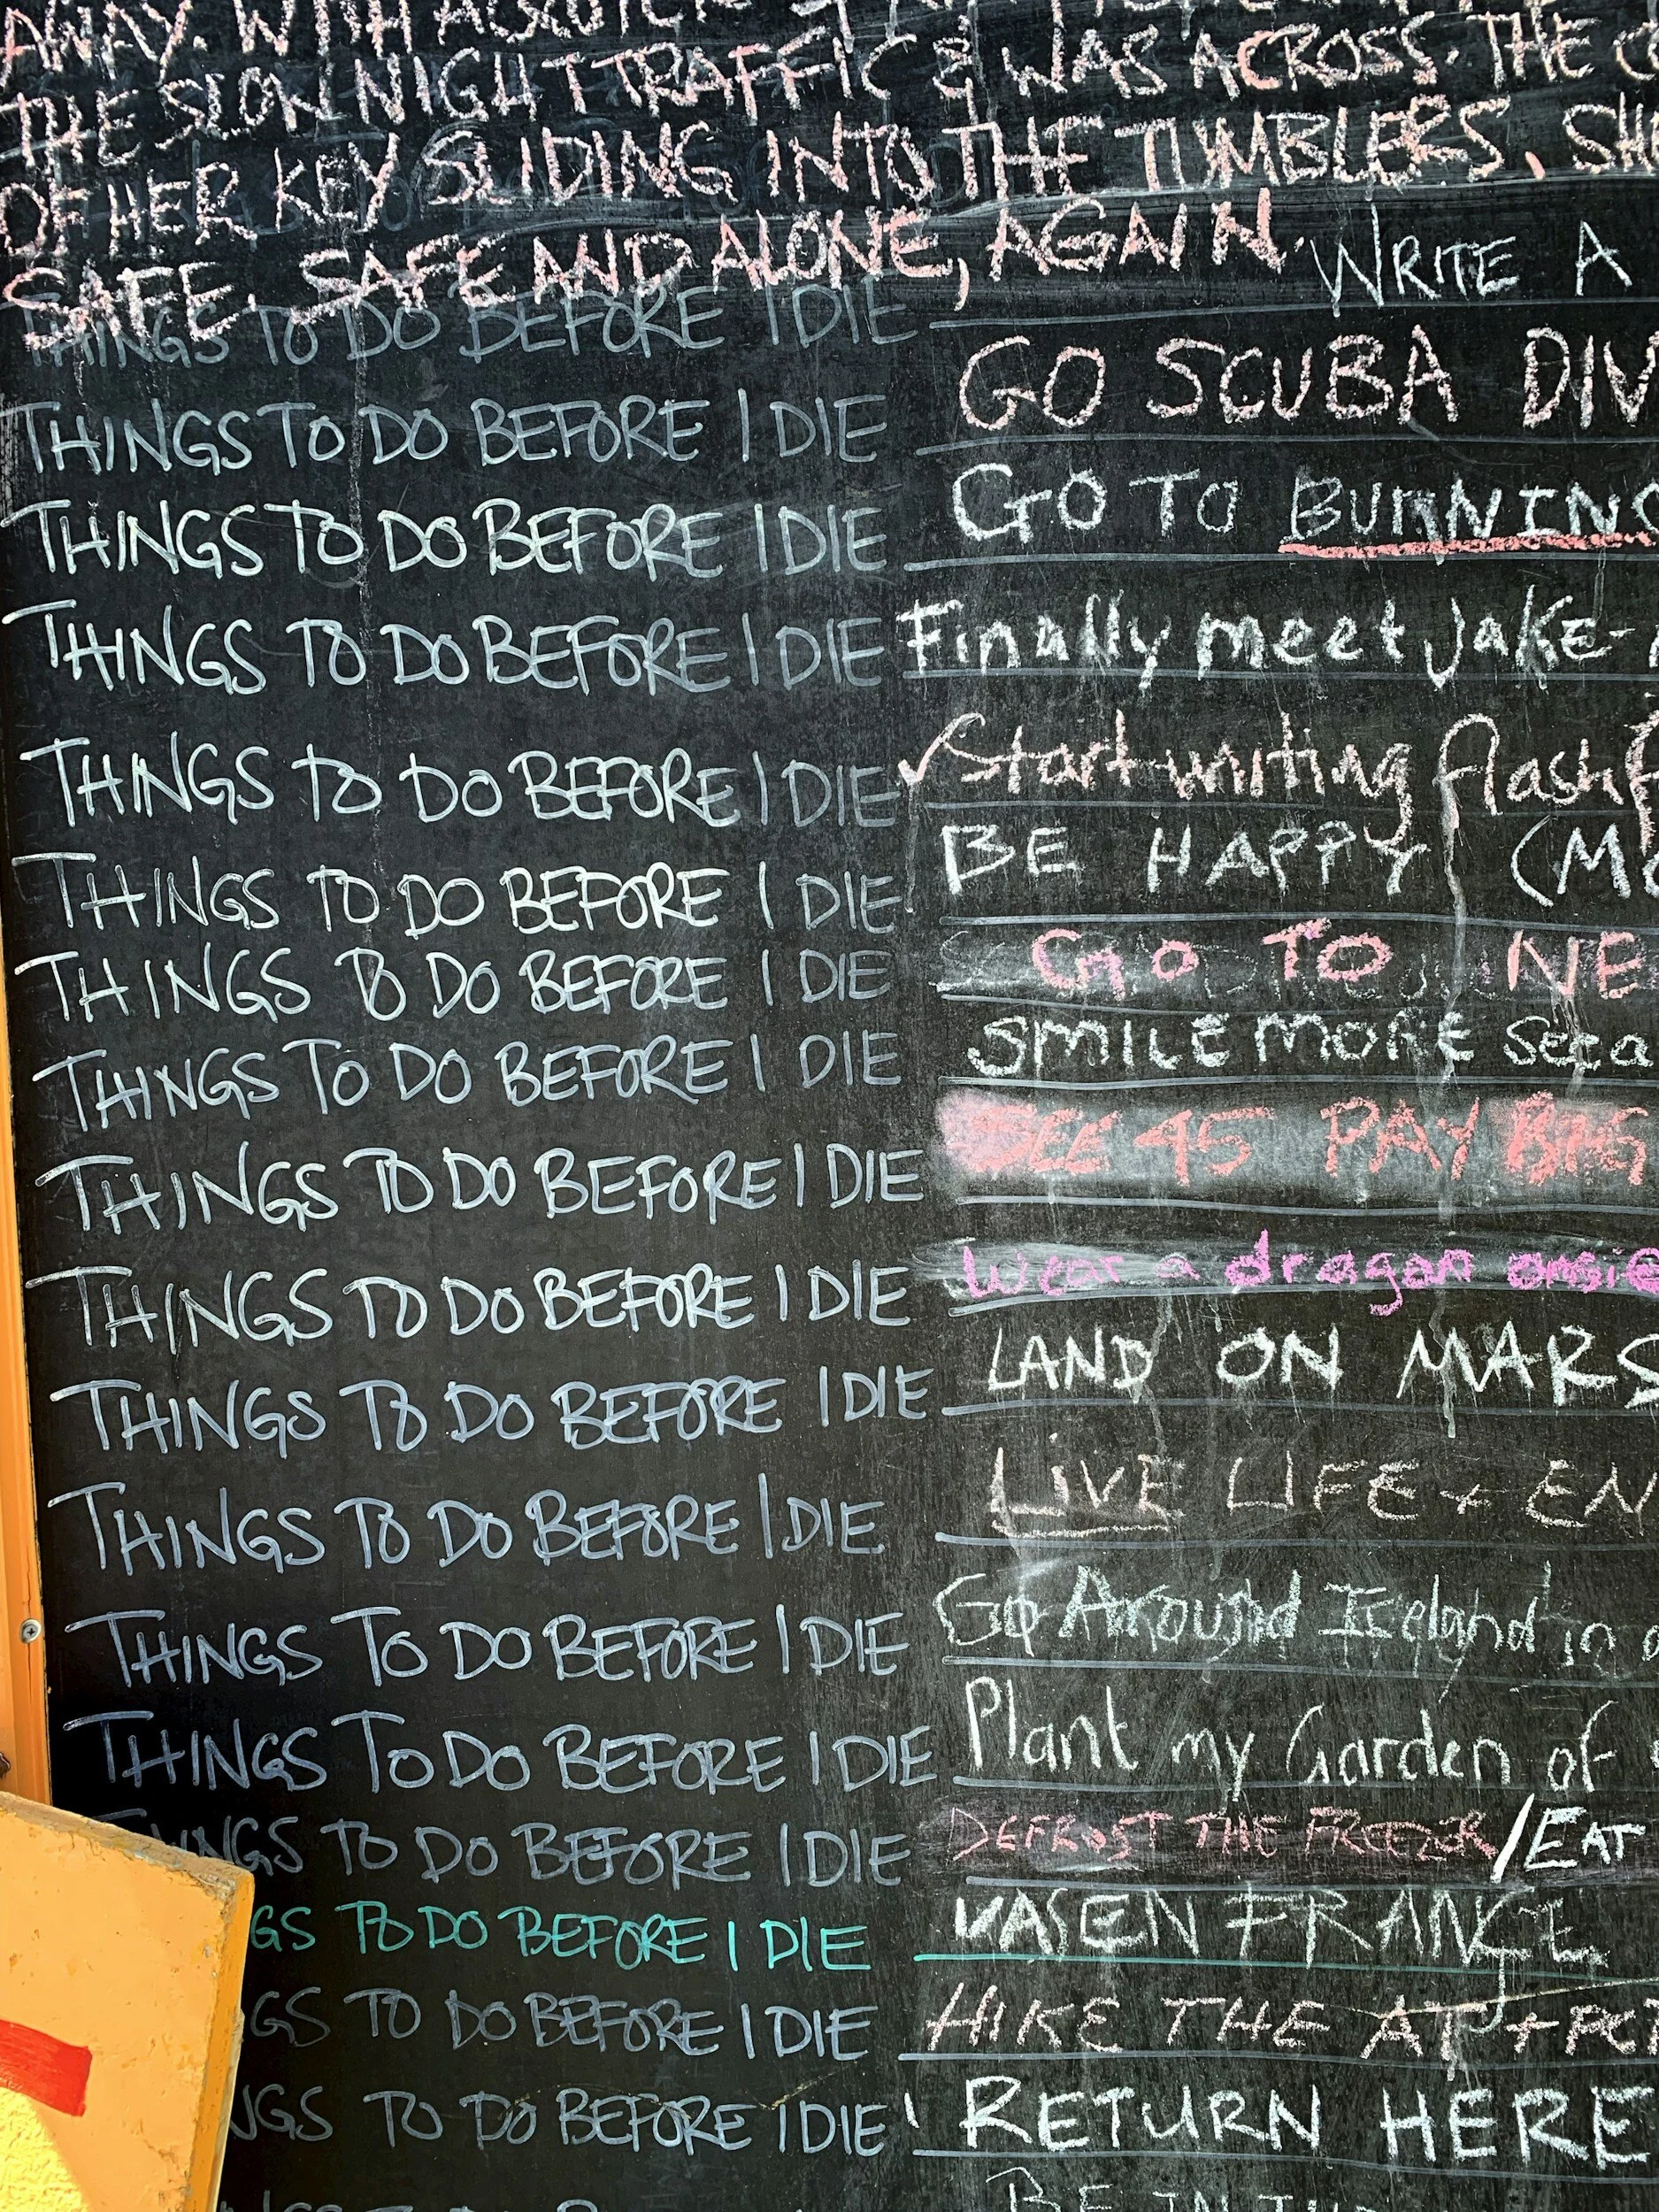 AWAY. WITH A
THE SLOW NIGHT TRAFFIC & WAS ACROSS. THE
OF HER KEY SLIDING INTO THE TUMBLERS. SH
SAFE. SAFE AND ALONE, AGAIN.
THINGS TO DO BEFORE I DIE WRITE A
THINGS TO DO BEFORE I DIE GO SCUBA DIV
THINGS TO DO BEFORE I DIE GO TO BURNING
THINGS TO DO BEFORE I DIE Finally meet Jake-
THINGS TO DO BEFORE I DIE Start writing flash f
THINGS TO DO BEFORE I DIE BE HAPPY (MO
THINGS TO DO BEFORE I DIE GO TO NE
THINGS TO DO BEFORE I DIE SMILE MORE
THINGS TO DO BEFORE I DIE SEE 45 PAY BIG
THINGS TO DO BEFORE I DIE Wear a dragon onsie
THINGS TO DO BEFORE I DIE LAND ON MARS
THINGS TO DO BEFORE I DIE LIVE LIFE + EN
THINGS TO DO BEFORE I DIE Go Around Iceland in a
THINGS TO DO BEFORE I DIE Plant my Garden of
THINGS TO DO BEFORE I DIE DEFROST THE FREEZER /EAT
GS TO DO BEFORE I DIE VASEN FRANCE
GS TO DO BEFORE I DIE HIKE THE AT + PCT
NGS TO DO BEFORE I DIE RETURN HERE
BE IN